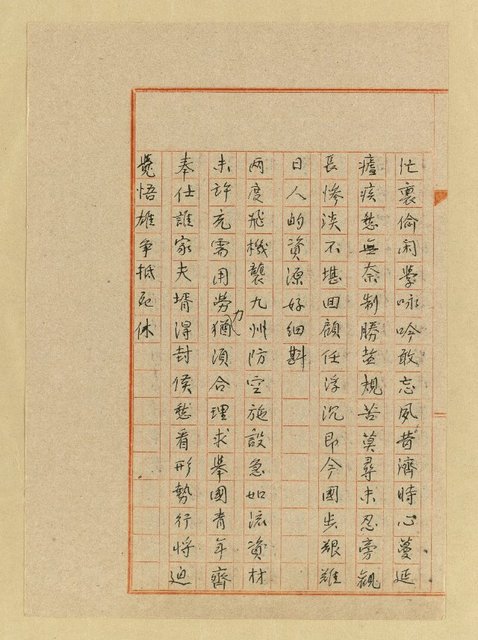 忙裏偷閑學咏吟敢忘風昔濟時心蔓延
瘧疾愁無奈制勝莁規苦莫尋未忍旁觀
長慘淡不堪回顧任浮沉即今國步艱難
日人的資源好細斟
兩度飛機襲九州防空施設急如流資材
未許充需用勞力猶須合理求舉國青年齊
奉仕誰家夫壻得封侯愁看形勢行將迫
覺悟雄爭抵死休